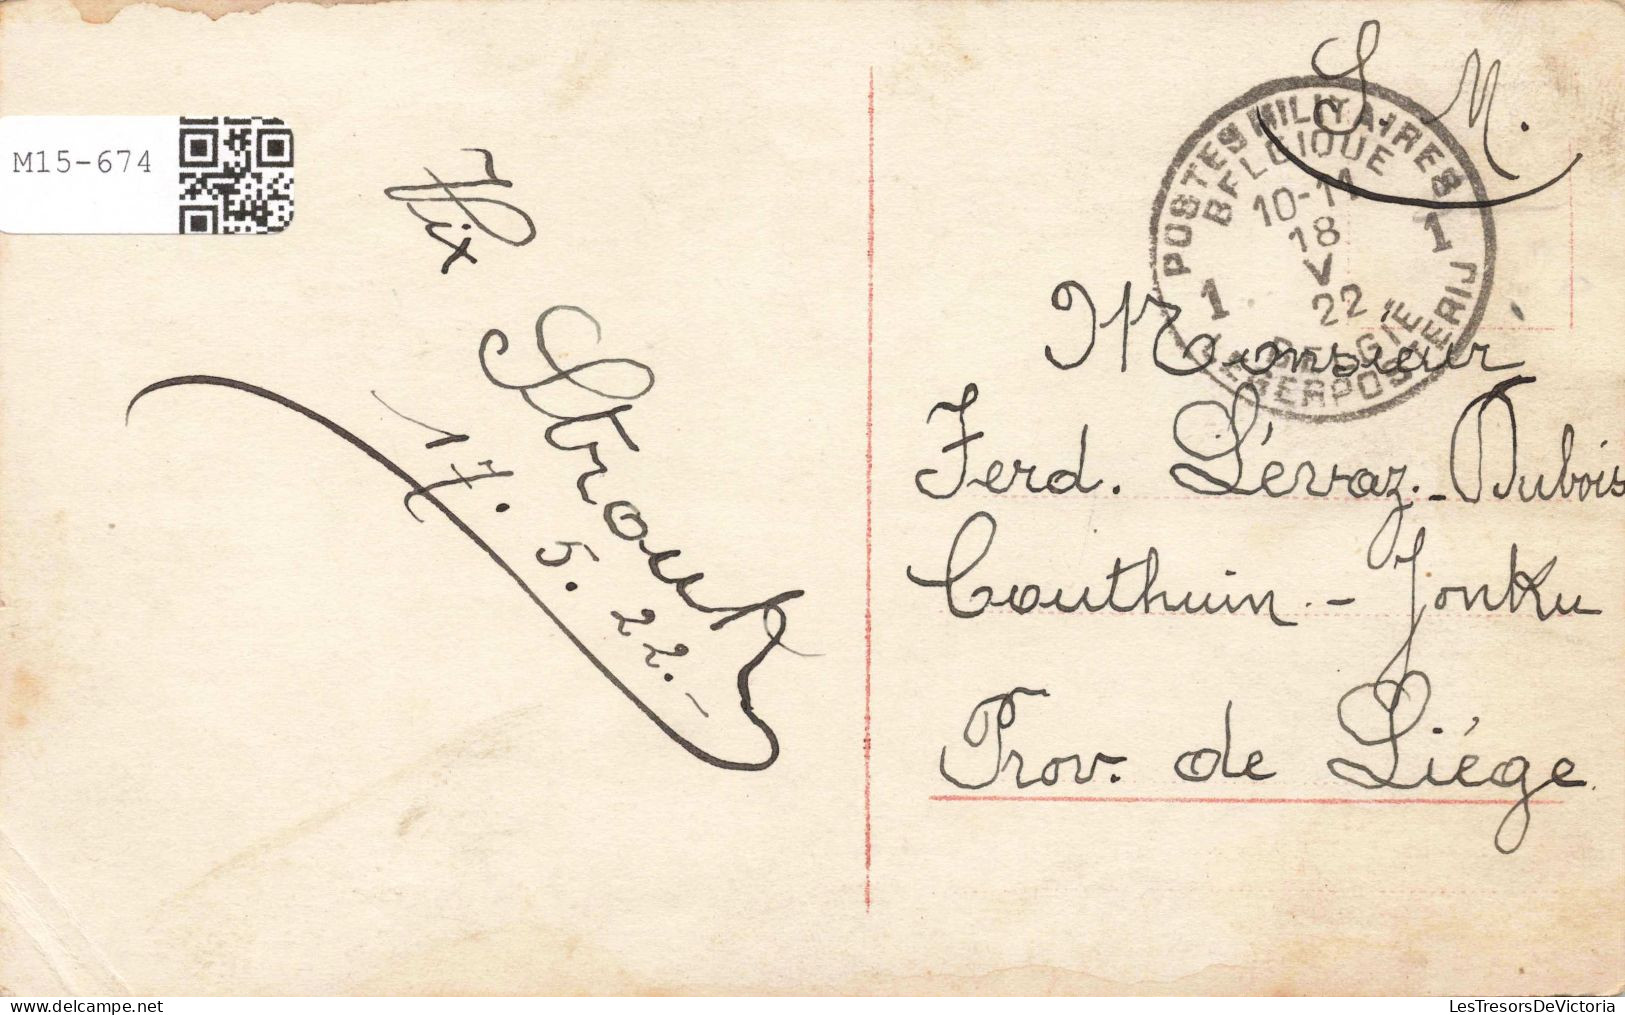 M15-674
Aix
17.5.22.-
S.M.
POSTES MILITAIRES
BELGIQUE
10-11
18
V
22
1 1
BELGIE
LEGERPOSTERIJ
Monsieur
Ferd. Lervaz.-Dubois
Couthuin.- Jonku
Prov. de Liége
LesTresorsDeVictoria
www.delcampe.net